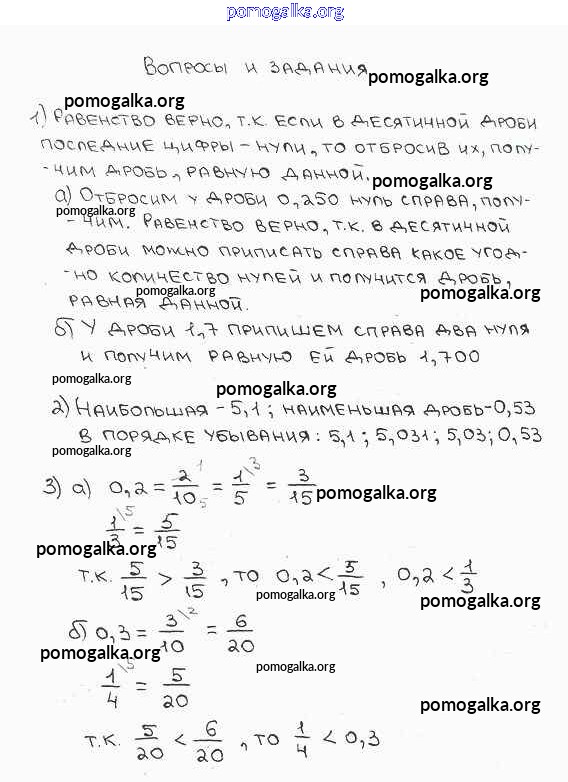 pomogalka.org
Вопросы и задания pomogalka.org
pomogalka.org
1) Равенство верно, т.к. если в десятичной дроби
последние цифры - нули, то отбросив их, полу-
-чим дробь, равную данной. pomogalka.org
а) Отбросим у дроби 0,250 нуль справа, полу-
pomogalka.org
-чим. Равенство верно, т.к. в десятичной
дроби можно приписать справа какое угод-
-но количество нулей и получится дробь,
pomogalka.org pomogalka.org
равная данной.
б) У дроби 1,7 припишем справа два нуля
и получим равную ей дробь 1,700
pomogalka.org pomogalka.org
2) Наибольшая - 5,1 ; наименьшая дробь - 0,53
в порядке убывания: 5,1 ; 5,031 ; 5,03; 0,53
pomogalka.org
3) а) 0,2 = 2/10 = 1/5 = 3/15 pomogalka.org
1/3 = 5/15
pomogalka.org
т.к. 5/15 > 3/15 , то 0,2 < 5/15 , 0,2 < 1/3
pomogalka.org pomogalka.org
б) 0,3 = 3/10 = 6/20
pomogalka.org pomogalka.org
1/4 = 5/20
pomogalka.org
т.к. 5/20 < 6/20 , то 1/4 < 0,3